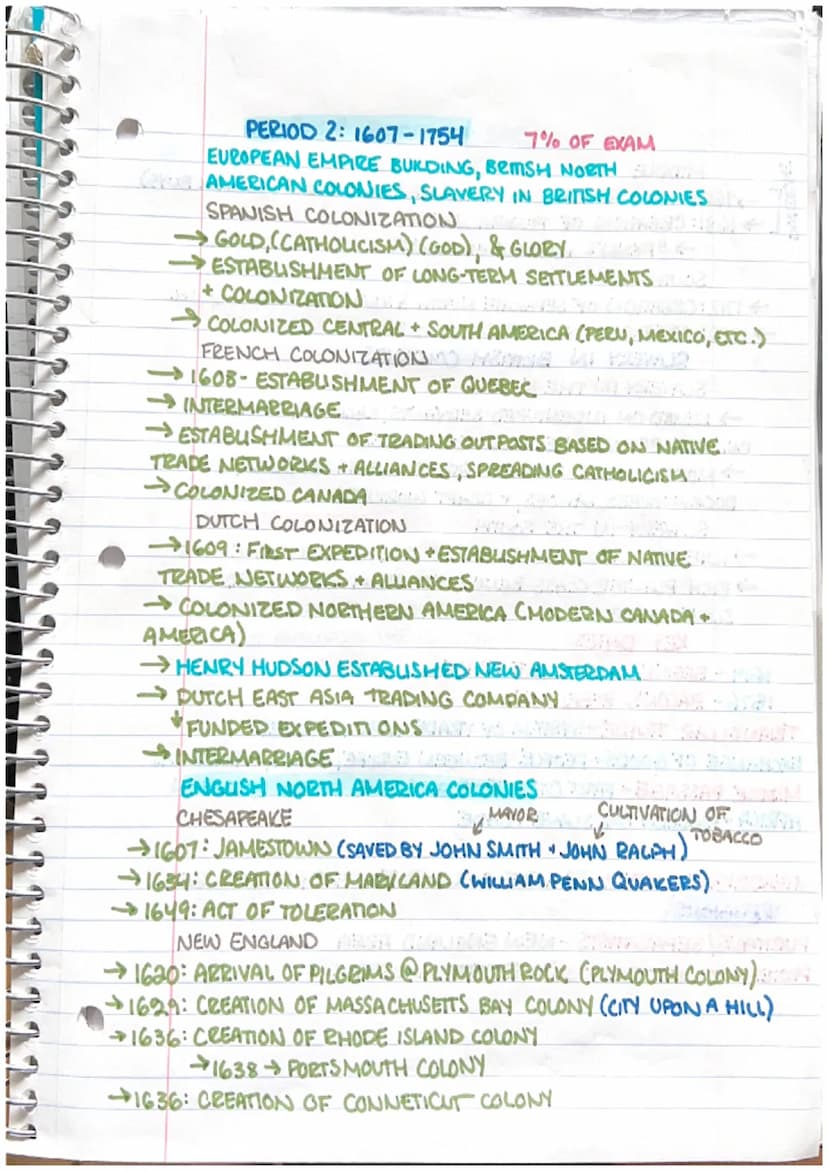 PERIOD 2: 1607-1754 7% OF EXAM
EUROPEAN EMPIRE BUILDING, BRITISH NORTH
AMERICAN COLONIES, SLAVERY IN BRITISH COLONIES
SPANISH COLONIZATION
→ GOLD, (CATHOLICISM) (GOD), & GLORY
→ ESTABLISHMENT OF LONG-TERM SETTLEMENTS
+ COLONIZATION
→ COLONIZED CENTRAL + SOUTH AMERICA (PERU, MEXICO, ETC.)
FRENCH COLONIZATION
→ 1608 - ESTABLISHMENT OF QUEBEC
→ INTERMARRIAGE
→ ESTABLISHMENT OF TRADING OUTPOSTS BASED ON NATIVE
TRADE NETWORKS + ALLIANCES, SPREADING CATHOLICISM
→ COLONIZED CANADA
DUTCH COLONIZATION
→ 1609: FIRST EXPEDITION + ESTABLISHMENT OF NATIVE
TRADE NETWORKS + ALLIANCES
→ COLONIZED NORTHERN AMERICA (MODERN CANADA +
AMERICA)
→ HENRY HUDSON ESTABLISHED NEW AMSTERDAM
→ DUTCH EAST ASIA TRADING COMPANY
↓ FUNDED EXPEDITIONS
→ INTERMARRIAGE
ENGLISH NORTH AMERICA COLONIES
CHESAPEAKE MAYOR CULTIVATION OF
TOBACCO
→ 1607: JAMESTOWN (SAVED BY JOHN SMITH + JOHN RALPH)
→ 1634: CREATION OF MARYLAND (WILLIAM PENN QUAKERS)
→ 1649: ACT OF TOLERATION
NEW ENGLAND
→ 1620: ARRIVAL OF PILGRIMS @ PLYMOUTH ROCK (PLYMOUTH COLONY)
→ 1629: CREATION OF MASSACHUSETTS BAY COLONY (CITY UPON A HILL)
→ 1636: CREATION OF RHODE ISLAND COLONY
→ 1638 → PORTSMOUTH COLONY
→ 1636: CREATION OF CONNETICUT COLONY